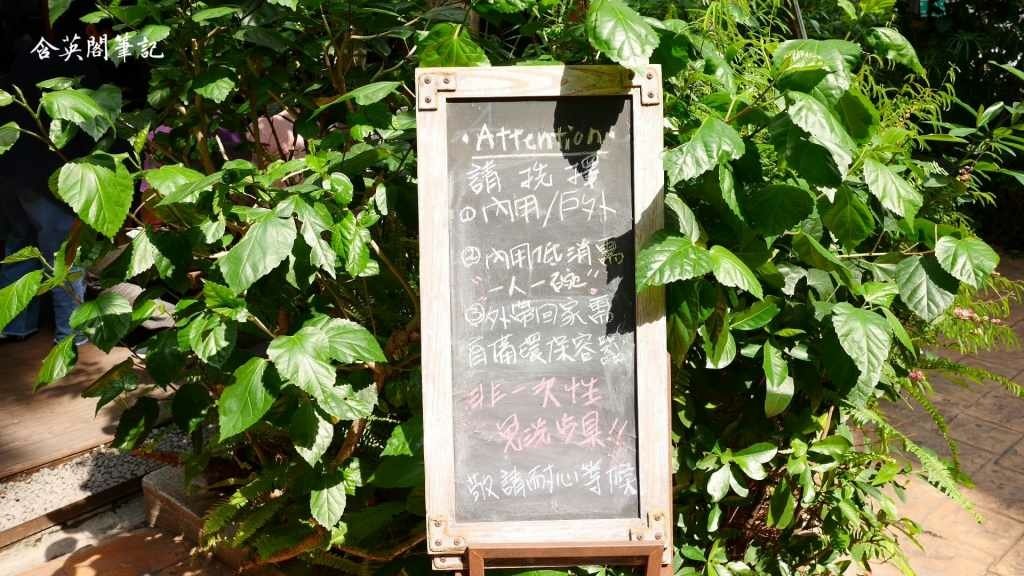 含英閣筆記
·Attention·
請洗擇
①內用/戶外
②內用低消需
"一人一碗"
③外帶回家需
自備環保容器
非一次性
免洗桌!!
敬請耐心等候